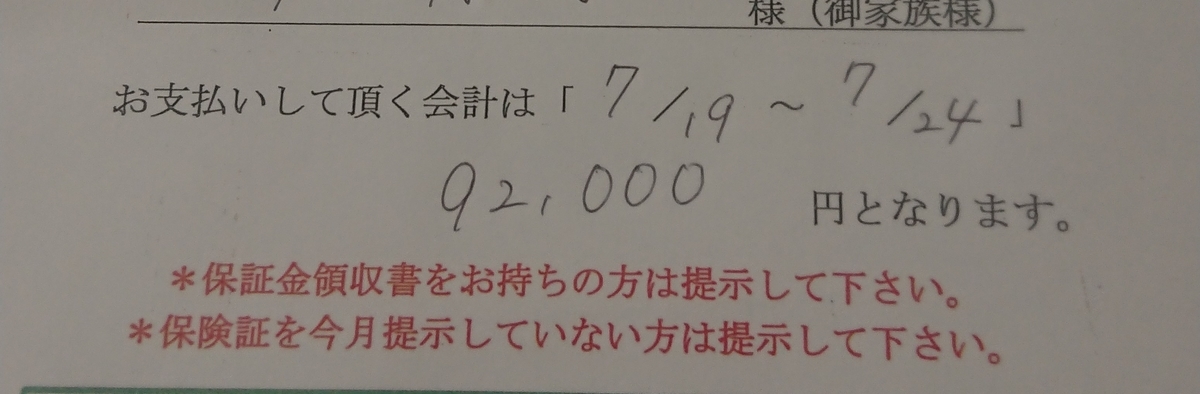 様（御家族様）
お支払いして頂く会計は「 7/19 ~ 7/24 」
92,000 円となります。
＊保証金領収書をお持ちの方は提示して下さい。
＊保険証を今月提示していない方は提示して下さい。